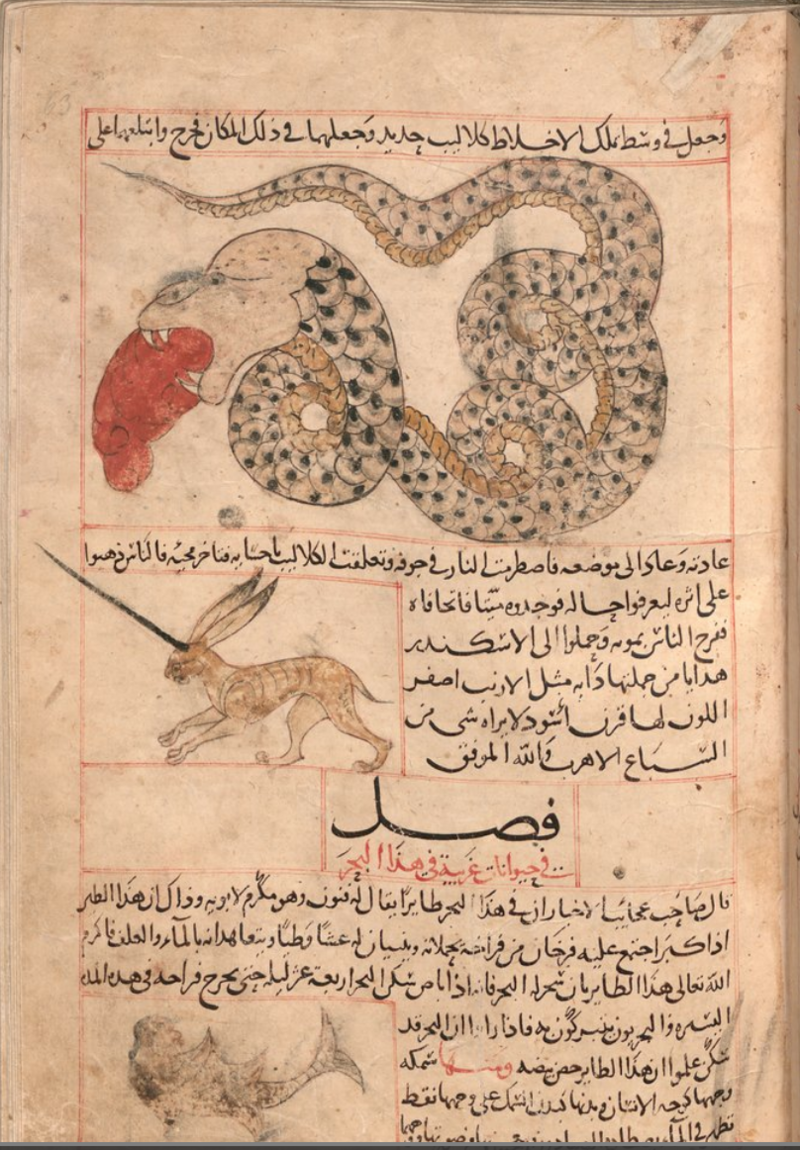 وجعل في وسط تلك الاخلاط كلاليب حديد وجعلهما في ذلك المكان فخرج وابتلعهما على
عادته وعاد الى موضعه فاضطرمت النار في جوفه وتعلقت الكلاليب باحشايه فتاخر مجيه فالناس ذهبوا
على اثره ليعرفوا حاله فوجدوه ميتا فاتحا فاه
ففرح الناس بموته وحملوا الى الاسكندر
هدايا من جملتها دابه مثل الارنب اصفر
اللون لها قرن اسود لا يراه شي من
السباع الا هرب والله الموفق
فصل
في حيوانات غريبة في هذا البحر
قال صاحب عجايب الاخبار ان في هذا البحر طايرا يقال له فنون وهو مكرم لابويه وذاك ان هذا الطير
اذا كبرا اجتمع عليه فرخان من فراخه يحملانه ويبنيان له عشا وطيا ويتعاهدانه بالماء والعلف فاكرم
الله تعالى هذا الطاير بان سخر له البحر فانه اذا باض سكن البحر اربعة عشر ليلة حتى يخرج فراخه في هذه المدة
اليسيره والبحريون يتبركون به فاذا راوا ان البحر قد
سكن علموا ان هذا الطاير حضن بيضه ومنها سمكه
وجهها كوجه الانسان وبدنها كبدن السمك على وجهها نقط
تظهر في الماء